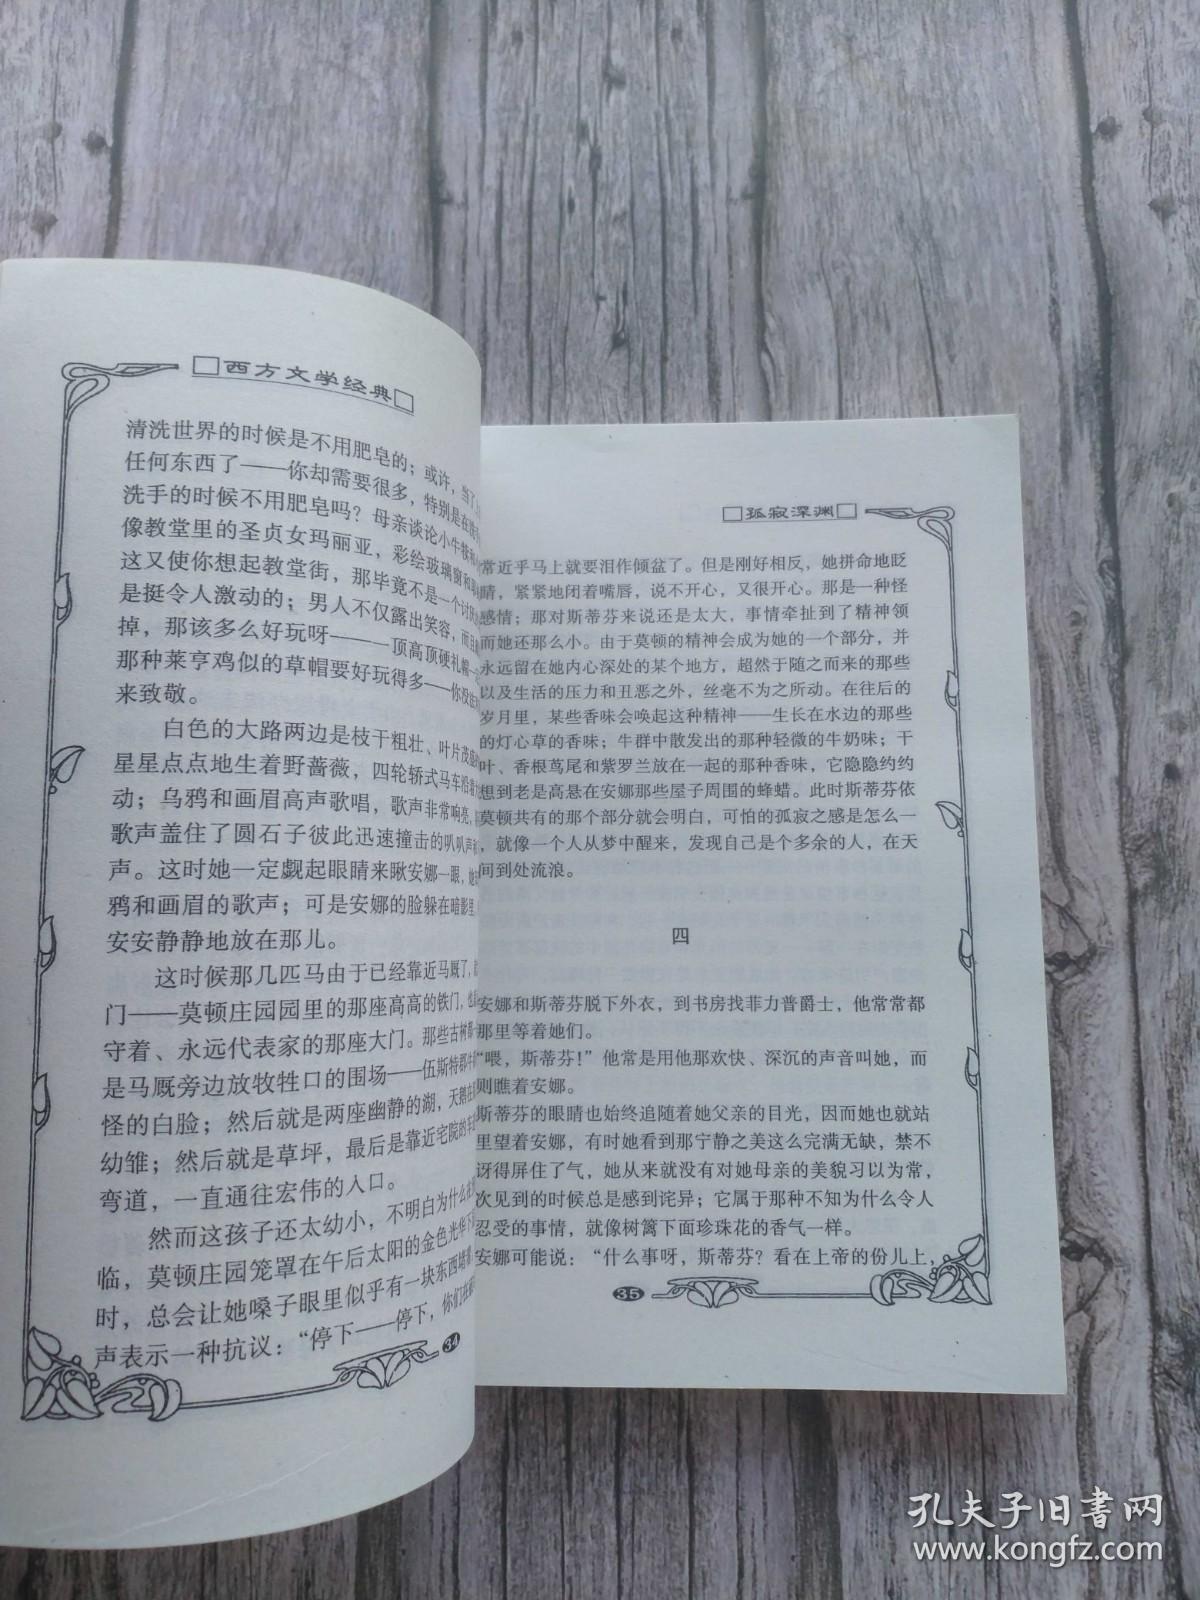 西方文学经典
清洗世界的时候是不用肥皂的；或许，当了
任何东西了——你却需要很多，特别是在洗手
洗手的时候不用肥皂吗？母亲谈论小牛犊和
像教堂里的圣贞女玛丽亚，彩绘玻璃窗和
这又使你想起教堂街，那毕竟不是一个讨厌
是挺令人激动的；男人不仅露出笑容，而且
掉，那该多么好玩呀——一顶高顶硬礼帽
那种莱亨鸡似的草帽要好玩得多——你没法
来致敬。
白色的大路两边是枝干粗壮、叶片茂盛
星星点点地生着野蔷薇，四轮轿式马车沿着
动；乌鸦和画眉高声歌唱，歌声非常响亮，
歌声盖住了圆石子彼此迅速撞击的叭叭声
声。这时她一定觑起眼睛来瞅安娜一眼，她
鸦和画眉的歌声；可是安娜的脸躲在暗影里
安安静静地放在那儿。
这时候那几匹马由于已经靠近马厩了，
门——莫顿庄园园里的那座高高的铁门，
守着、永远代表家的那座大门。那些古树
是马厩旁边放牧牲口的围场——伍斯特郡牛
怪的白脸；然后就是两座幽静的湖，天鹅在
幼雏；然后就是草坪，最后是靠近宅院的车
弯道，一直通往宏伟的入口。
然而这孩子还太幼小，不明白为什么在
临，莫顿庄园笼罩在午后太阳的金色光华下
时，总会让她嗓子眼里似乎有一块东西堵着
声表示一种抗议：“停下——停下，你们在
34
孤寂深渊
常近乎马上就要泪作倾盆了。但是刚好相反，她拼命地眨
睛，紧紧地闭着嘴唇，说不开心，又很开心。那是一种怪
感情；那对斯蒂芬来说还是太大，事情牵扯到了精神领
而她还那么小。由于莫顿的精神会成为她的一个部分，并
永远留在她内心深处的某个地方，超然于随之而来的那些
以及生活的压力和丑恶之外，丝毫不为之所动。在往后的
岁月里，某些香味会唤起这种精神——生长在水边的那些
的灯心草的香味；牛群中散发出的那种轻微的牛奶味；干
叶、香根茑尾和紫罗兰放在一起的那种香味，它隐隐约约
想到老是高悬在安娜那些屋子周围的蜂蜡。此时斯蒂芬依
莫顿共有的那个部分就会明白，可怕的孤寂之感是怎么一
，就像一个人从梦中醒来，发现自己是个多余的人，在天
间到处流浪。
四
安娜和斯蒂芬脱下外衣，到书房找菲力普爵士，他常常都
那里等着她们。
“喂，斯蒂芬！”他常是用他那欢快、深沉的声音叫她，而
则瞧着安娜。
斯蒂芬的眼睛也始终追随着她父亲的目光，因而她也就站
里望着安娜，有时她看到那宁静之美这么完满无缺，禁不
讶得屏住了气，她从来就没有对她母亲的美貌习以为常，
次见到的时候总是感到诧异；它属于那种不知为什么令人
忍受的事情，就像树篱下面珍珠花的香气一样。
安娜可能说：“什么事呀，斯蒂芬？看在上帝的份儿上，
35
孔夫子旧书网
www.kongfz.com